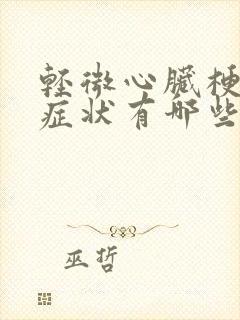 轻微心臟梗
症状有哪些
巫哲